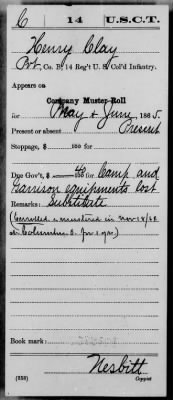 C | 14 | U.S.C.T.
Henry Clay
Pvt, Co. B, 14 Reg't U. S. Col'd Infantry.
Appears on
Company Muster Roll
for May & June, 1865.
Present or absent Present
Stoppage, $ 100 for
Due Gov't, $ 40/100 for Camp and
Garrison equipments lost
Remarks: Substitute
(Enrolled & mustered in Nov 18/64
at Columbus O. for 1 yr.)
Book mark:
(858) Nesbitt
Copyist